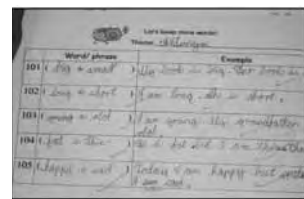 Let's learn more words!
Theme:
Word/ phrase Example
101 ( big & small ) My book is big. Her book is
102 ( long & short ) I am long, she is short.
103 ( young & old ) I am young. My grandfather
old.
104 ( fat & thin )
105 ( happy & sad ) Today I am happy but
I am sad.